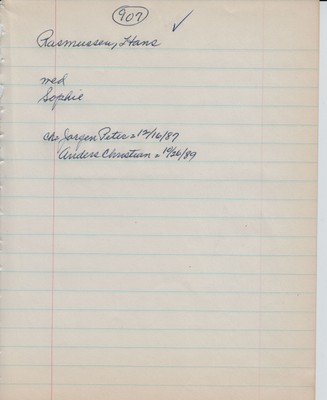 907 ✓
Rasmussen, Hans
med
Sophie
chs Jorgen Peter = 12/16/87
Anders Christian = 10/26/89